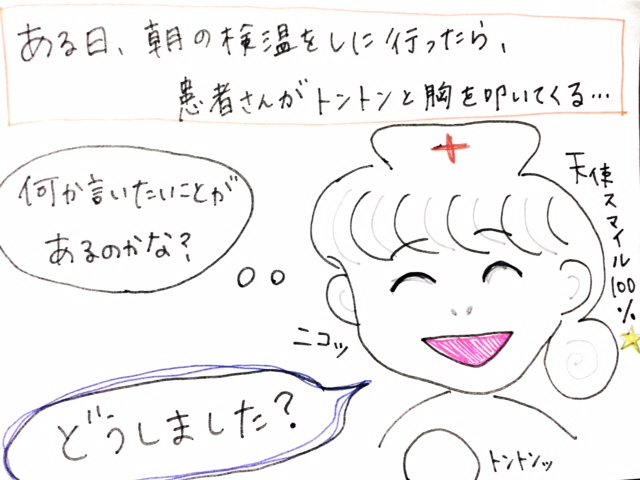 ある日、朝の検温をしに行ったら、
患者さんがトントンと胸を叩いてくる…
何か言いたいことが
あるのかな？
天使スマイル100%
ニコッ
どうしました？
トントンッ